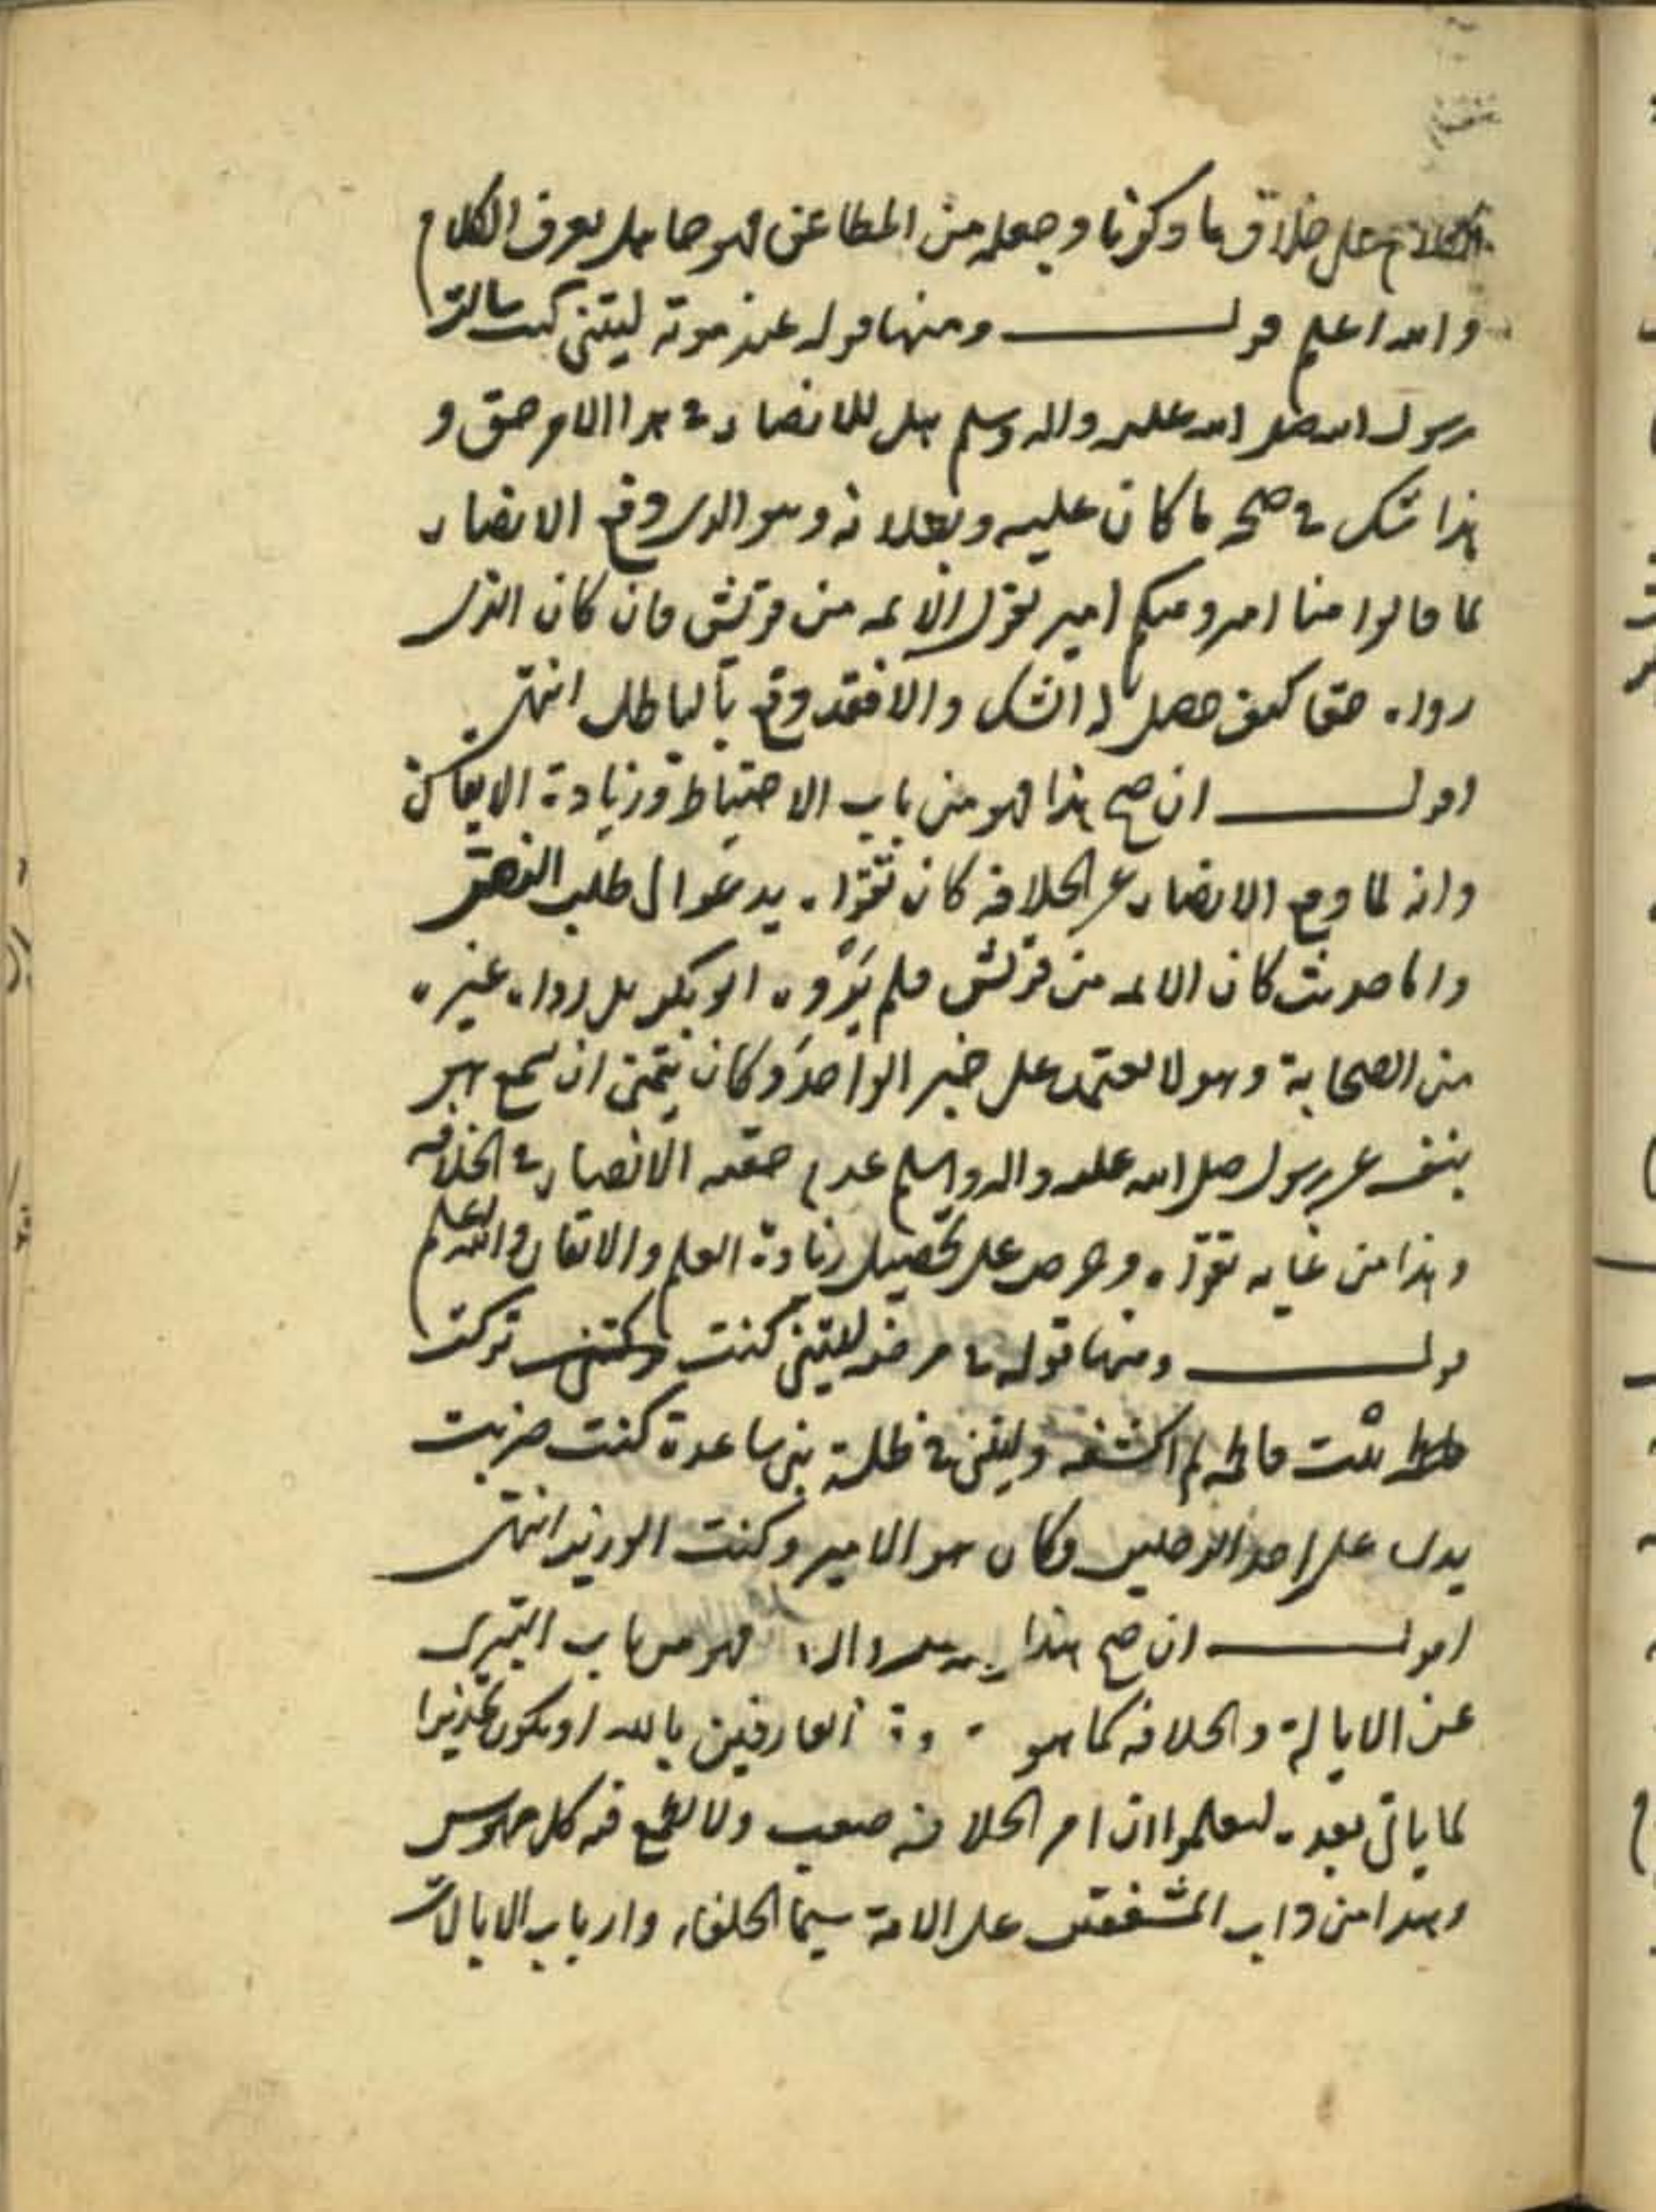 الكلام على خلاف ما ذكرنا وجعله من المطاعن فهو جاهل بعرف الكلام
والله اعلم قولــــه ومنها قوله عند موته ليتني كنت سالت
رسول الله صلى الله عليه واله وسلم هل للانصار في هذا الامر حق و
هذا شك في صحة ما كان عليه وبطلانه وهو الذي دفع الانصار
لما قالوا منا امير ومنكم امير بقوله الايمه من قريش فان كان الذي
رواه حقا كيف حصل له الشك والا فقد دفع بالباطل انتهى
اقولــــ ان صح هذا فهو من باب الاحتياط وزيادة الايقان
وانه لما دفع الانصار عن الخلافه كان تقواه يدعو الى طلب النص
واما حديث كان الايمه من قريش فلم يروه ابو بكر بل رواه غيره
من الصحابة وهو لا يعتمد على خبر الواحد وكان يتمنى ان يسمع هو
بنفسه عن رسول صلى الله عليه واله وسلم عدم حقيه الانصار في الخلافه
وهذا من غايه تقواه وحرصه على تحصيل زيادة العلم والاتقان والله اعلم
قولــــ ومنها قوله في مرضه ليتني كنت تركت
بيت فاطمه لم اكشفه وليتني في ظلة بني ساعدة كنت ضربت
يدي على احد الرجلين وكان هو الامير وكنت الوزير انتهى
اقولــــ ان صح هذا فهو من باب التبري
عن الايالة والخلافه كما هو العارفين بالله او يكون تحذيرا
لما ياتي بعده ليعلموا ان امر الخلافه صعب ولا يطمع فيه كل مهوس
وهذا من داب المشفقين على الامة سيما الخلفاء وارباب الايالات